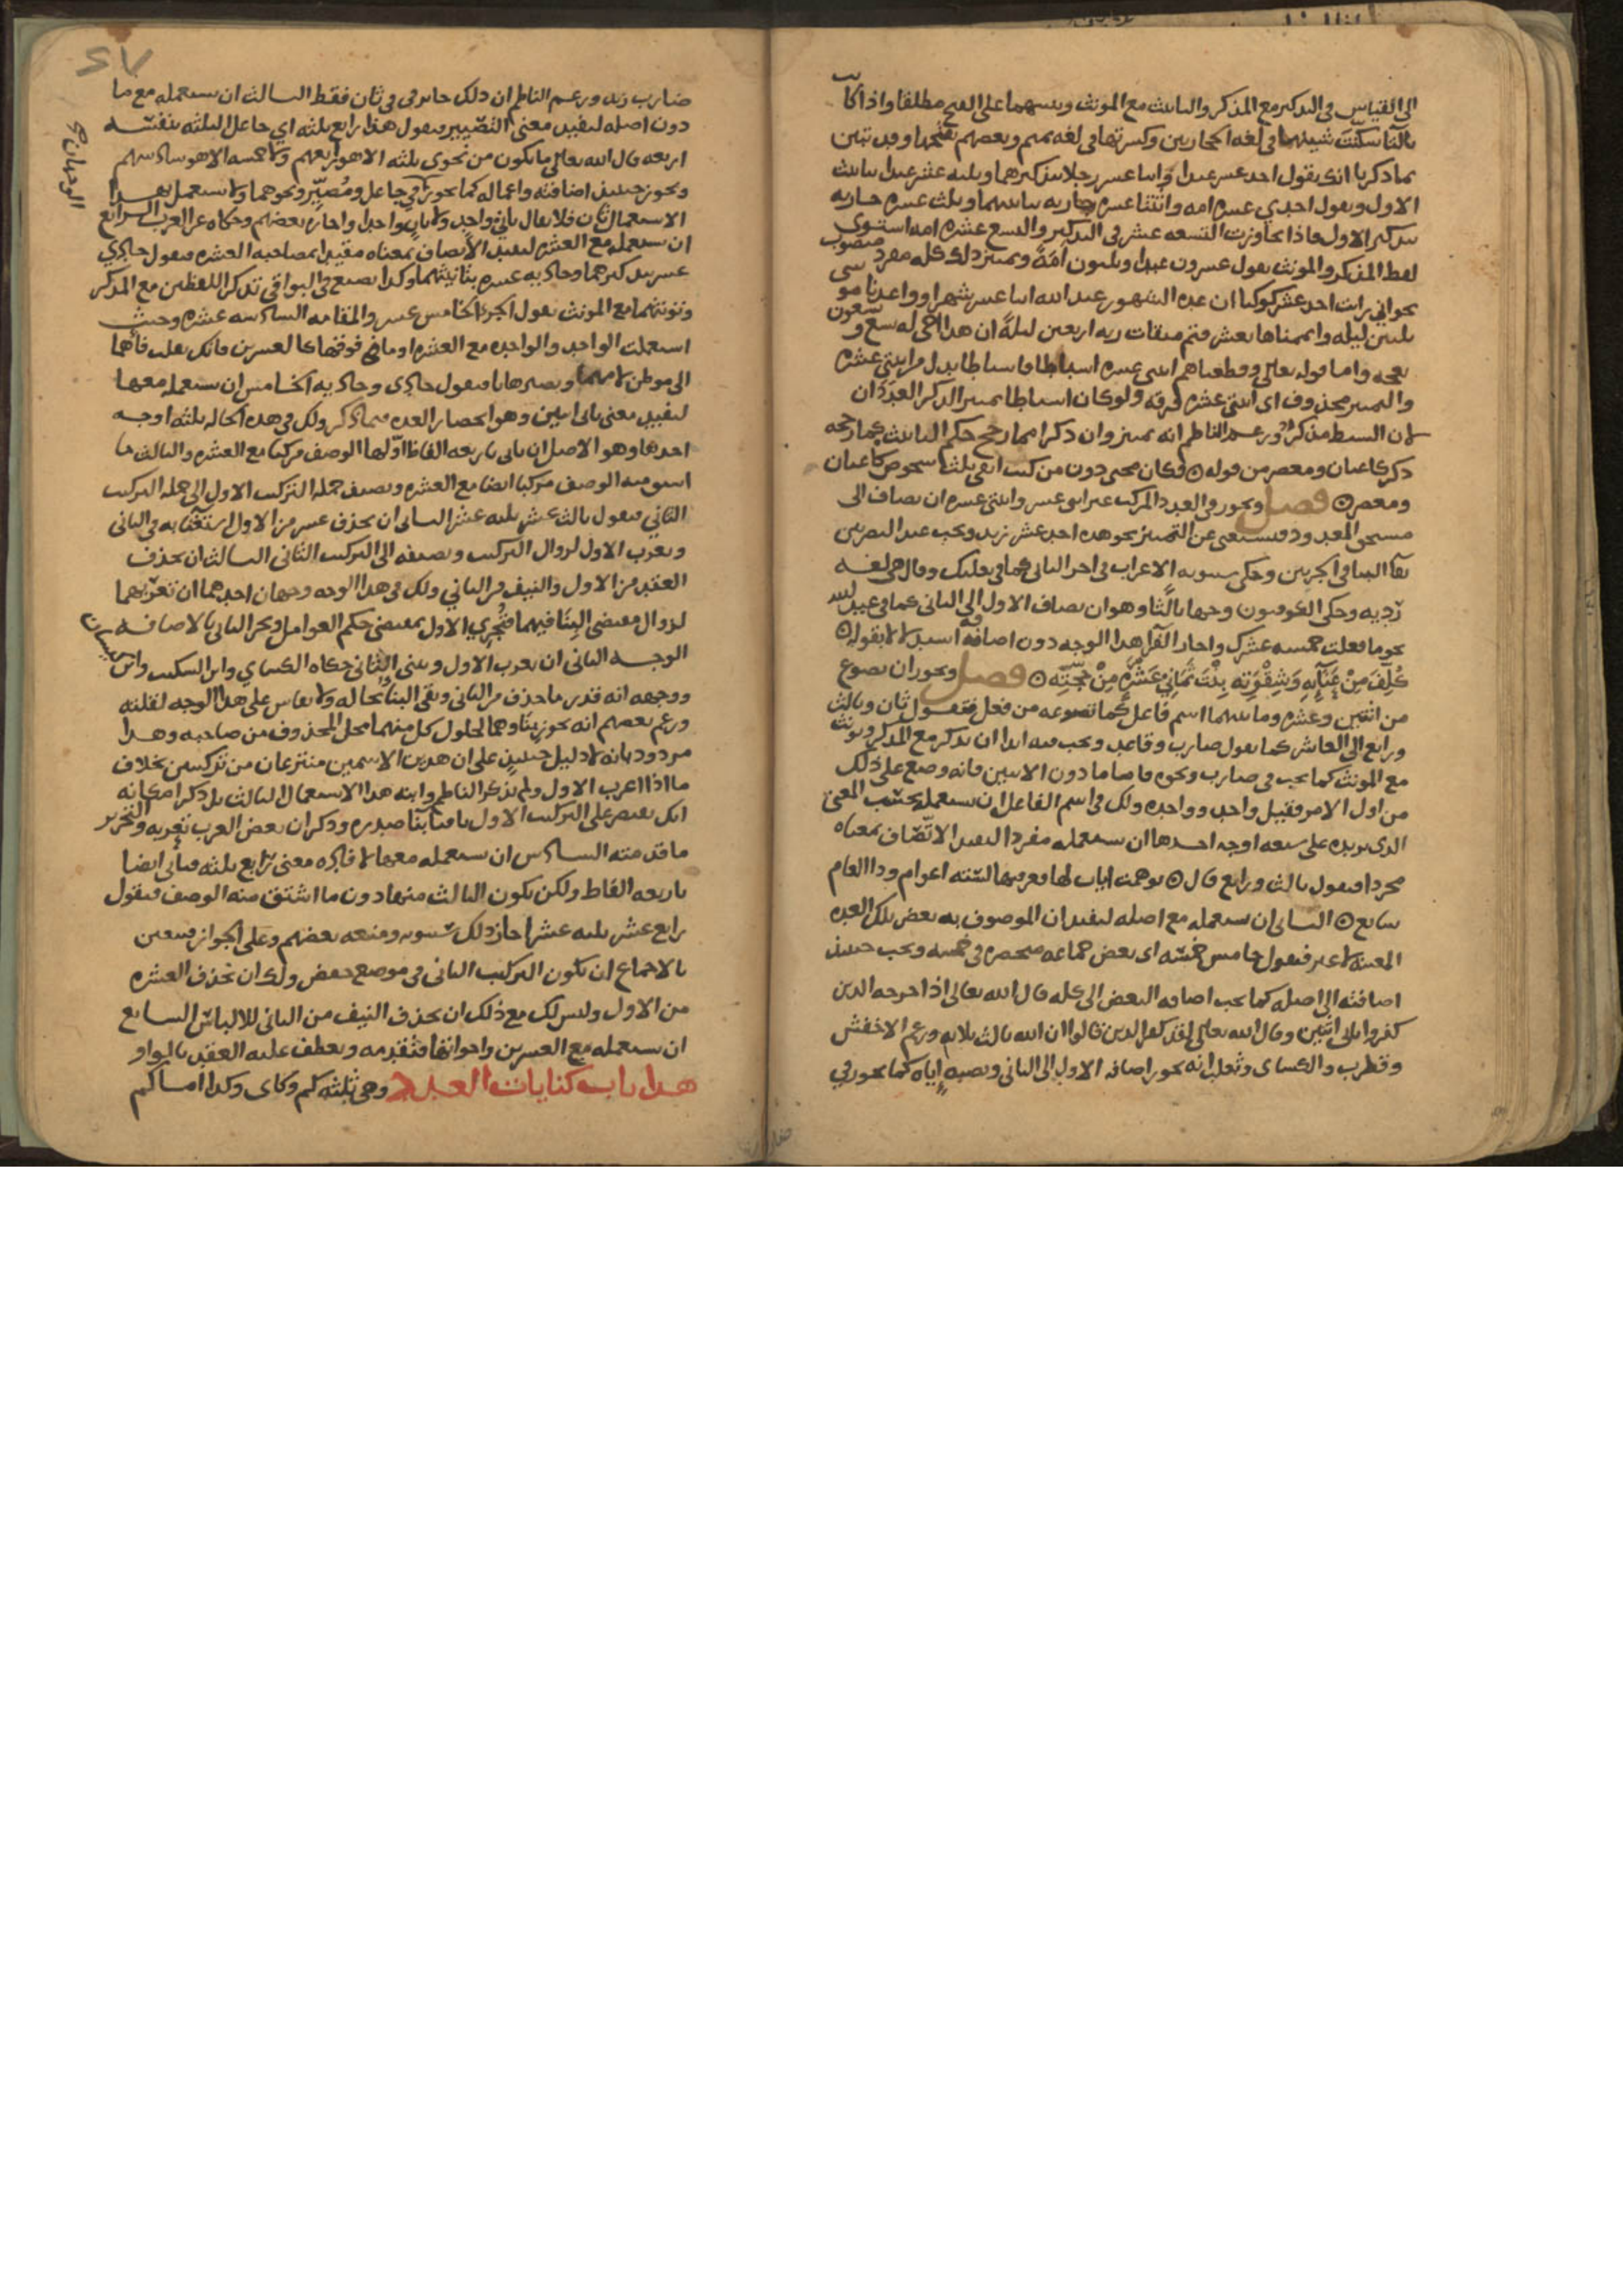 الى القياس في التذكير مع المذكر والتانيث مع المونث وتبنيهما على الفتح مطلقا واذا كانت
بالتا سكنت شينها في لغة الحجازيين وكسرتها في لغة تميم وبعضهم يفتحها وقد تبين
بما ذكرنا انك تقول احد عشر عبدا واثنا عشر رجلا بتذكيرهما وثلثة عشر عبدا بتانيث
الاول وتقول احدي عشرة امة واثنتا عشرة جارية بتانيثهما وثلث عشرة جارية
بتذكير الاول فاذا تجاوزت التسعة عشر في التذكير والتسع عشرة امة استوى
لفظ المذكر والمونث تقول عشرون عبدا وثلثون امَةً وتمييز ذلك كله مفرد منصوب
نحو اني رايت احد عشر كوكبا ان عدة الشهور عند الله اثنا عشر شهرا وواعدنا موسى
ثلثين ليلة واتممناها بعشر فتم ميقات ربه اربعين ليلةً ان هذا اخي له تسع وتسعون
نعجة واما قوله تعالى وقطعناهم اثنتي عشرة اسباطا فاسباطا بدل من اثنتي عشرة
والتمييز محذوف اى اثنتي عشرة فرقة ولو كان اسباطا تمييزا لذكر العددان
لان السبط مذكر وزعم الناظم انه تمييز وان ذكر امما رجح حكم التانيث كما رجحه
ذكر كاعبان ومعصر من قوله ⊙ فكان مجني دون من كنت اتقي ثلث شخوص كاعبان
ومعصر ⊙ فصل ويجوز في العدد المركب غير اثنى عشر واثنتي عشرة ان يضاف الى
مستحق المعدود فيستغنى عن التمييز نحو هذه احد عشر زيد ويجب عند البصريين
بقآ البنا في الجزيين وحكى سيبويه الاعراب في اخر الثاني كما في بعلبك وقال هي لغة
رديه وحكى الكوفيون وجها ثالثا وهو ان يضاف الاول الى الثاني كما في عبد الله
نحو ما فعلت خمسة عشرك واجاز الفرا هذا الوجه دون اضافة استدلالا بقوله ⊙
كُلِّفَ مِنْ عَنَآئِهِ وَشِقْوَتِه بِنْتَ ثَمَانِي عَشْرَةٍ مِنْ حِجَّتِه ⊙ فصل ويجوز ان تصوغ
من اثنين وعشرة وما بينهما اسم فاعل كما تصوغه من فعل فتقول ثان وثالث
ورابع الى العاشر كما تقول ضارب وقاعد ويجب فيه ابدا ان يذكر مع المذكر ويونث
مع المونث كما يجب في ضارب ونحوه فاما ما دون الاثنين فانه وضع على ذلك
من اول الامر فقيل واحد وواحدة ولك في اسم الفاعل ان تستعمله بحسب المعنى
الذي تريده على سبعة اوجه احدها ان تستعمله مفردا ليفيد الاتّصاف بمعناه
مجردا فتقول ثالث ورابع قال ⊙ توهمت ايات لها فعرفتها لستة اعوام وذا العام
سابع ⊙ الثاني ان تستعمله مع اصله ليفيد ان الموصوف به بعض تلك العدة
المعينة لا غير فتقول خامس خمسة اى بعض جماعة منحصرة في خمسة ويجب حينئذ
اضافته الى اصله كما يجب اضافة البعض الى كله قال الله تعالى اذ اخرجه الذين
كفروا ثاني اثنين وقال الله تعالى لقد كفر الذين قالوا ان الله ثالث ثلاثة وزعم الاخفش
وقطرب والكساى وثعلب انه يجوز اضافة الاول الى الثاني ونصبه اياه كما يجوز في
ضارب زيد وزعم الناظم ان ذلك جائز في ثان فقط الثالث ان تستعمله مع ما
دون اصله ليفيد معنى التصيير فتقول هذا رابع ثلثة اي جاعل الثلثة بنفسه
اربعة قال الله تعالى ما يكون من نجوى ثلثة الا هو رابعهم ولا خمسة الا هو سادسهم
ويجوز حينئذ اضافته واعماله كما يجوز في جاعل ومُصَيِّر ونحوهما ولا يستعمل بهذا
الوجهان
الاستعمال ثان فلا يقال ثاني واحد ولا ثانٍ واحدا واجازه بعضهم وحكاه عن العرب الرابع
ان تستعمله مع العشرة ليفيد الاتصاف بمعناه مقيدا بمصاحبة العشرة فتقول حادي
عشر بتذكيرهما وحادية عشرة بتانيثهما وكذا تصنع في البواقي تذكر اللفظين مع المذكر
وتونثهما مع المونث تقول الجزء الخامس عشر والمقامة السادسة عشرة وحيث
استعملت الواحد والواحدة مع العشرة او ما فوقها كالعشرين فانك تقلب فاهما
الى موطن لامهما وتصيرها يا فتقول حادي وحادية الخامس ان تستعمله معها
ليفيد معنى ثاني اثنين وهو انحصار العدة فيما ذكر ولك في هذه الحالة ثلثة اوجه
احدها وهو الاصل ان تاتي باربعة الفاظ اوّلها الوصف مركبا مع العشرة والثالث ما
اشتق منه الوصف مركبا ايضا مع العشرة وتضيف جملة التركيب الاول الى جملة التركيب
الثاني فتقول ثالث عشر ثلثة عشر الثاني ان تحذف عشر من الاول استغنا به في الثاني
وتعرب الاول لزوال التركيب وتضيفه الى التركيب الثاني الثالث ان تحذف
العقد من الاول والنيف من الثاني ولك في هذا الوجه وجهان احدهما ان تعربهما
لزوال مقتضى البنا فيهما فتُجري الاول بمقتضى حكم العوامل وتجر الثاني بالاضافة
الوجه الثاني ان تعرب الاول وتبني الثاني حكاه الكساي وابن السكيت وابن كيسان
ووجهه انه قدر ما حذف من الثاني وبقى البنا بحاله ولا يقاس على هذا الوجه لقلته
وزعم بعضهم انه يجوز بناوهما لحلول كل منهما محل المحذوف من صاحبه وهذا
مردود بانه لا دليل حينئذٍ على ان هذين الاسمين منتزعان من تركيبين بخلاف
ما اذا اعرب الاول ولم يذكر الناظم وابنه هذا الاستعمال الثالث بل ذكرا مكانه
انك تقتصر على التركيب الاول باقيا بنا صدره وذكر ان بعض العرب يعربه والتحرير
ما قدمته السادس ان تستعمله معها لافادة معنى رابع ثلثة فتاتي ايضا
باربعة الفاظ ولكن يكون الثالث منها دون ما اشتق منه الوصف فتقول
رابع عشر ثلثة عشر اجاز ذلك سيبويه ومنعه بعضهم وعلى الجواز فيتعين
بالاجماع ان يكون التركيب الثاني في موضع خفض ولك ان تحذف العشرة
من الاول وليس لك مع ذلك ان تحذف النيف من الثاني للالباس السابع
ان تستعمله مع العشرين واخواتها فتقدمه وتعطف عليه العقد بالواو
هذا باب كنايات العدد وهى ثلثة كم وكاى وكذا اما كم